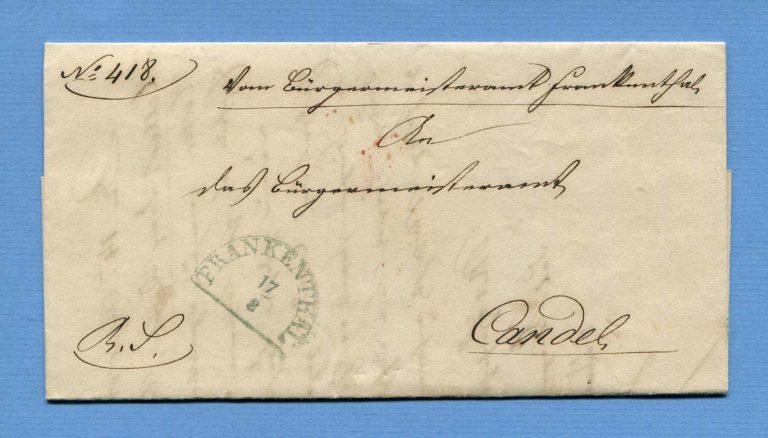 No. 418.
Vom Bürgermeisteramt Frankenthal
An
das Bürgermeisteramt
FRANKENTHAL
17
8
R. S.
Candel